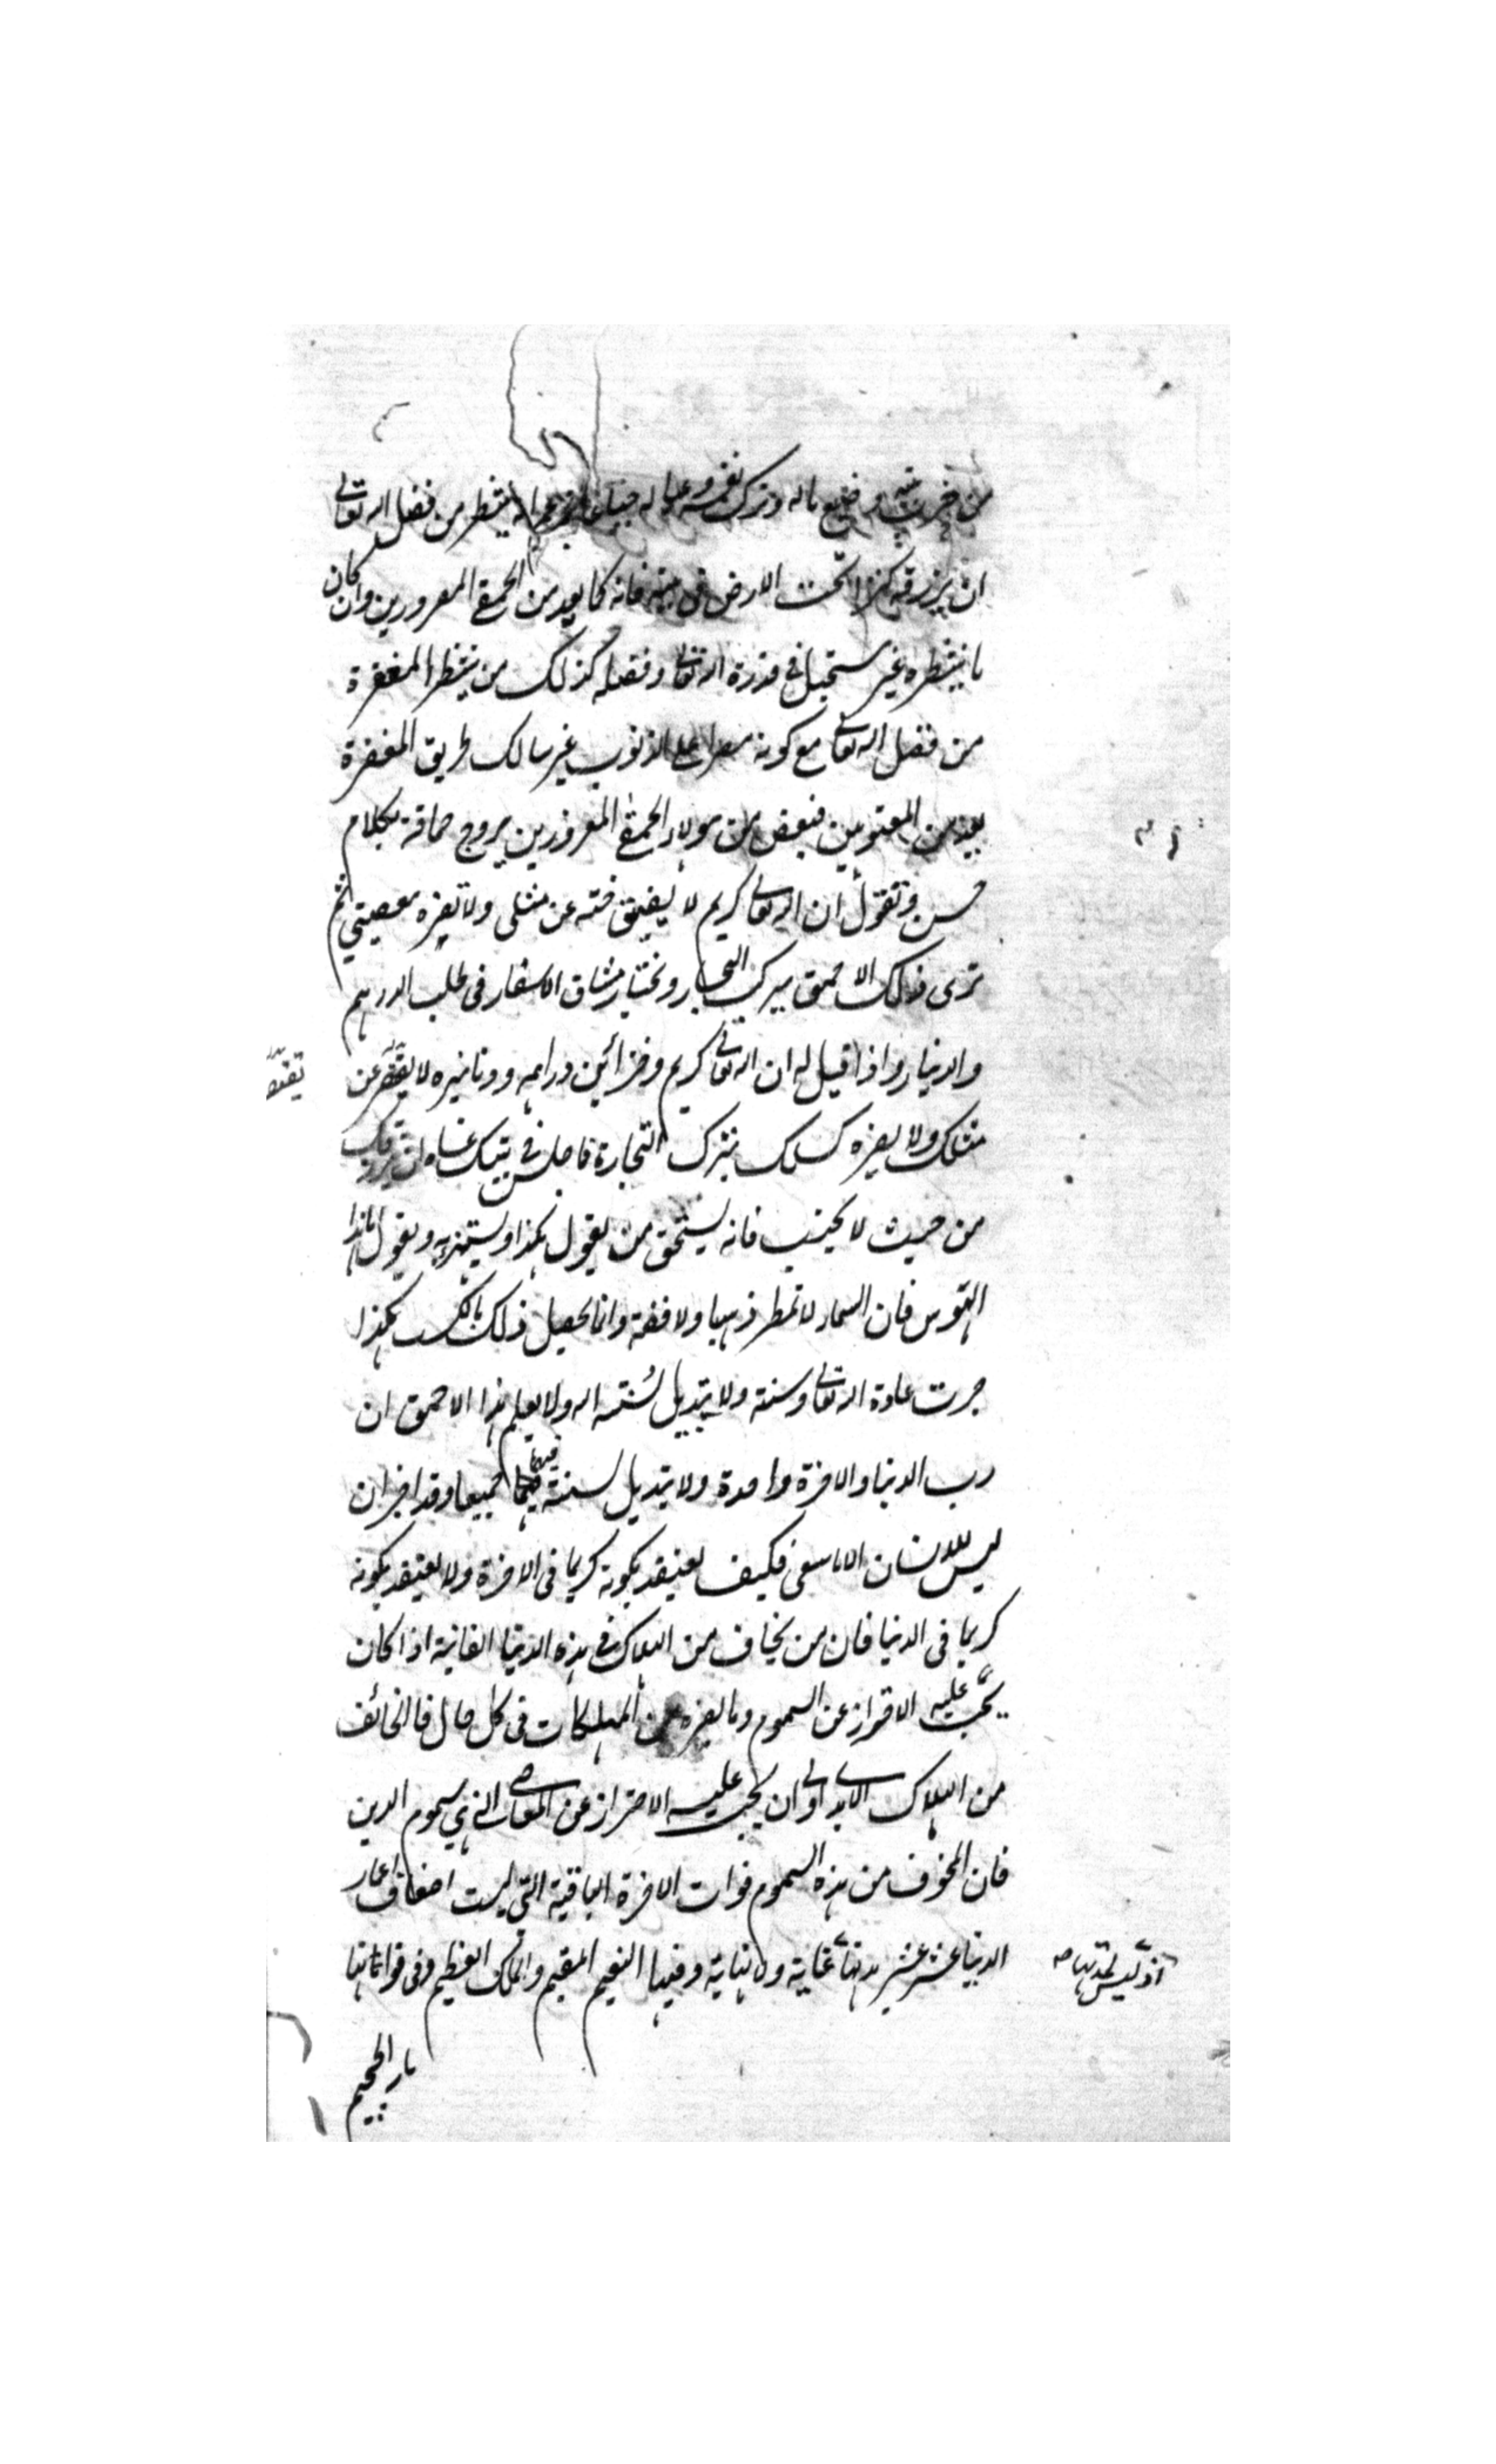 من خرب بيته وضيع ماله وترك نفسه وعياله جياعا يزعم انه ينتظر من فضل الله تعالى
ان يرزقه كنزا تحت الارض في بيته فانه كما يعد من الحمقى المغرورين وان كان
ما ينتظره غير مستحيل في قدرة الله تعالى وفضله كذلك من ينتظر المغفرة
من فضل الله تعالى مع كونه مصرا على الذنوب غير سالك طريق المغفرة
يعد من المعتوهين فبعض من هؤلاء الحمقى المغرورين يروج حماقته بكلام
حسن وتقول ان الله تعالى كريم لا يضيق جنته عن مثلى ولا تضره معصيتي ثم
ترى ذلك الاحمق يركب البحار وتختار مشاق الاسفار في طلب الدرهم
والدينار واذا قيل له ان الله تعالى كريم وخزائن دراهمه ودنانيره لا يقصر عن
مثلك ولا يضره كسلك بترك التجارة فاجلس في بيتك عساه ان يرزقك
من حيث لا تحتسب فانه يستحمق من يقول هكذا ويستهزئ به ويقول ما هذا
الهوس فان السماء لا تمطر ذهبا ولا فضة وانما يحصل ذلك بالكسب هكذا
جرت عادة الله تعالى وسنته ولا تبديل لسنة الله ولا يعلم هذا الاحمق ان
رب الدنيا والاخرة واحدة ولا تبديل لسنته فيهما جميعا وقد اخبر ان
ليس للانسان الا ما سعى فكيف يعتقد بكونه كريما في الاخرة ولا يعتقد بكونه
كريما في الدنيا فان من يخاف من الهلاك في هذه الدنيا الفانية اذا كان
يجب عليه الاقراز عن السموم وما يضره من المهلكات في كل حال فالخائف
من الهلاك الابدي اولى ان يجب عليه الاحتراز عن المعاصي التي هي سموم الدين
فان المخوف من هذه السموم فوات الاخرة الباقية التي ليست اضعاف اعمار
الدنيا عشر عشير مدتها غاية ولا نهاية وفيها النعيم المقيم والملك العظيم وفي فواتها
نار الجحيم
اذ ليس لمدتها صح